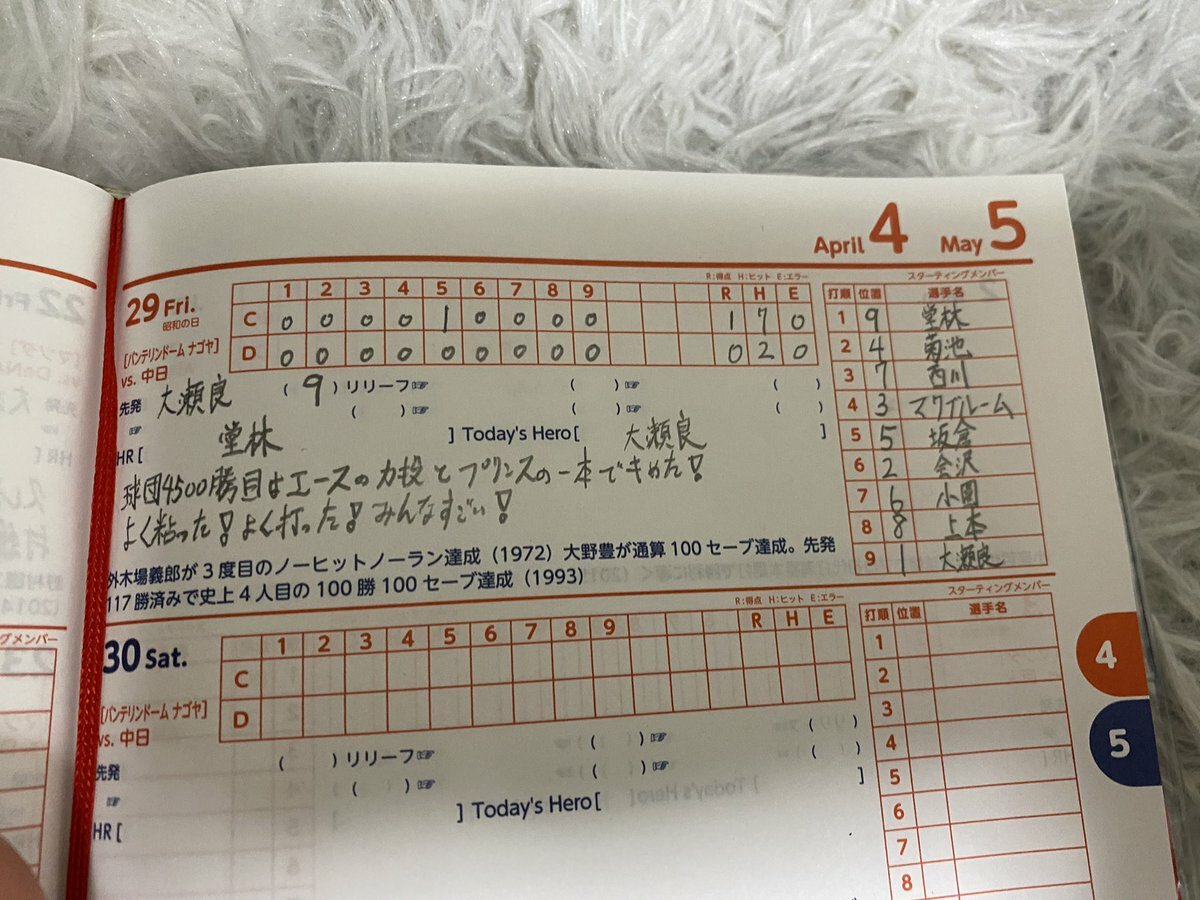 April 4 May 5
R:得点 H:ヒット E:エラー
スターティングメンバー
29 Fri.
昭和の日
1 2 3 4 5 6 7 8 9 R H E
C 0 0 0 0 1 0 0 0 0 1 7 0
D 0 0 0 0 0 0 0 0 0 0 2 0
[バンテリンドーム ナゴヤ]
vs. 中日
先発 大瀬良 (9) リリーフ☞ ( ) ☞ ( )
☞ ( ) ☞ ( ) ☞ ( )
HR [ 堂林 ] Today's Hero [ 大瀬良 ]
球団4500勝目はエースの力投とプリンスの一本できめた!
よく粘った!よく打った!みんなすごい!
外木場義郎が3度目のノーヒットノーラン達成(1972)大野豊が通算100セーブ達成。先発
117勝済みで史上4人目の100勝100セーブ達成(1993)
打順 位置 選手名
1 9 堂林
2 4 菊池
3 7 西川
4 3 マクブルーム
5 5 坂倉
6 2 会沢
7 6 小園
8 8 上本
9 1 大瀬良
R:得点 H:ヒット E:エラー
スターティングメンバー
30 Sat.
1 2 3 4 5 6 7 8 9 R H E
C
D
[バンテリンドーム ナゴヤ]
vs. 中日
先発 ( ) リリーフ☞ ( ) ☞ ( )
☞ ( ) ☞ ( ) ☞ ( )
HR [ ] Today's Hero [ ]
打順 位置 選手名
1
2
3
4
5
6
7
8
4
5